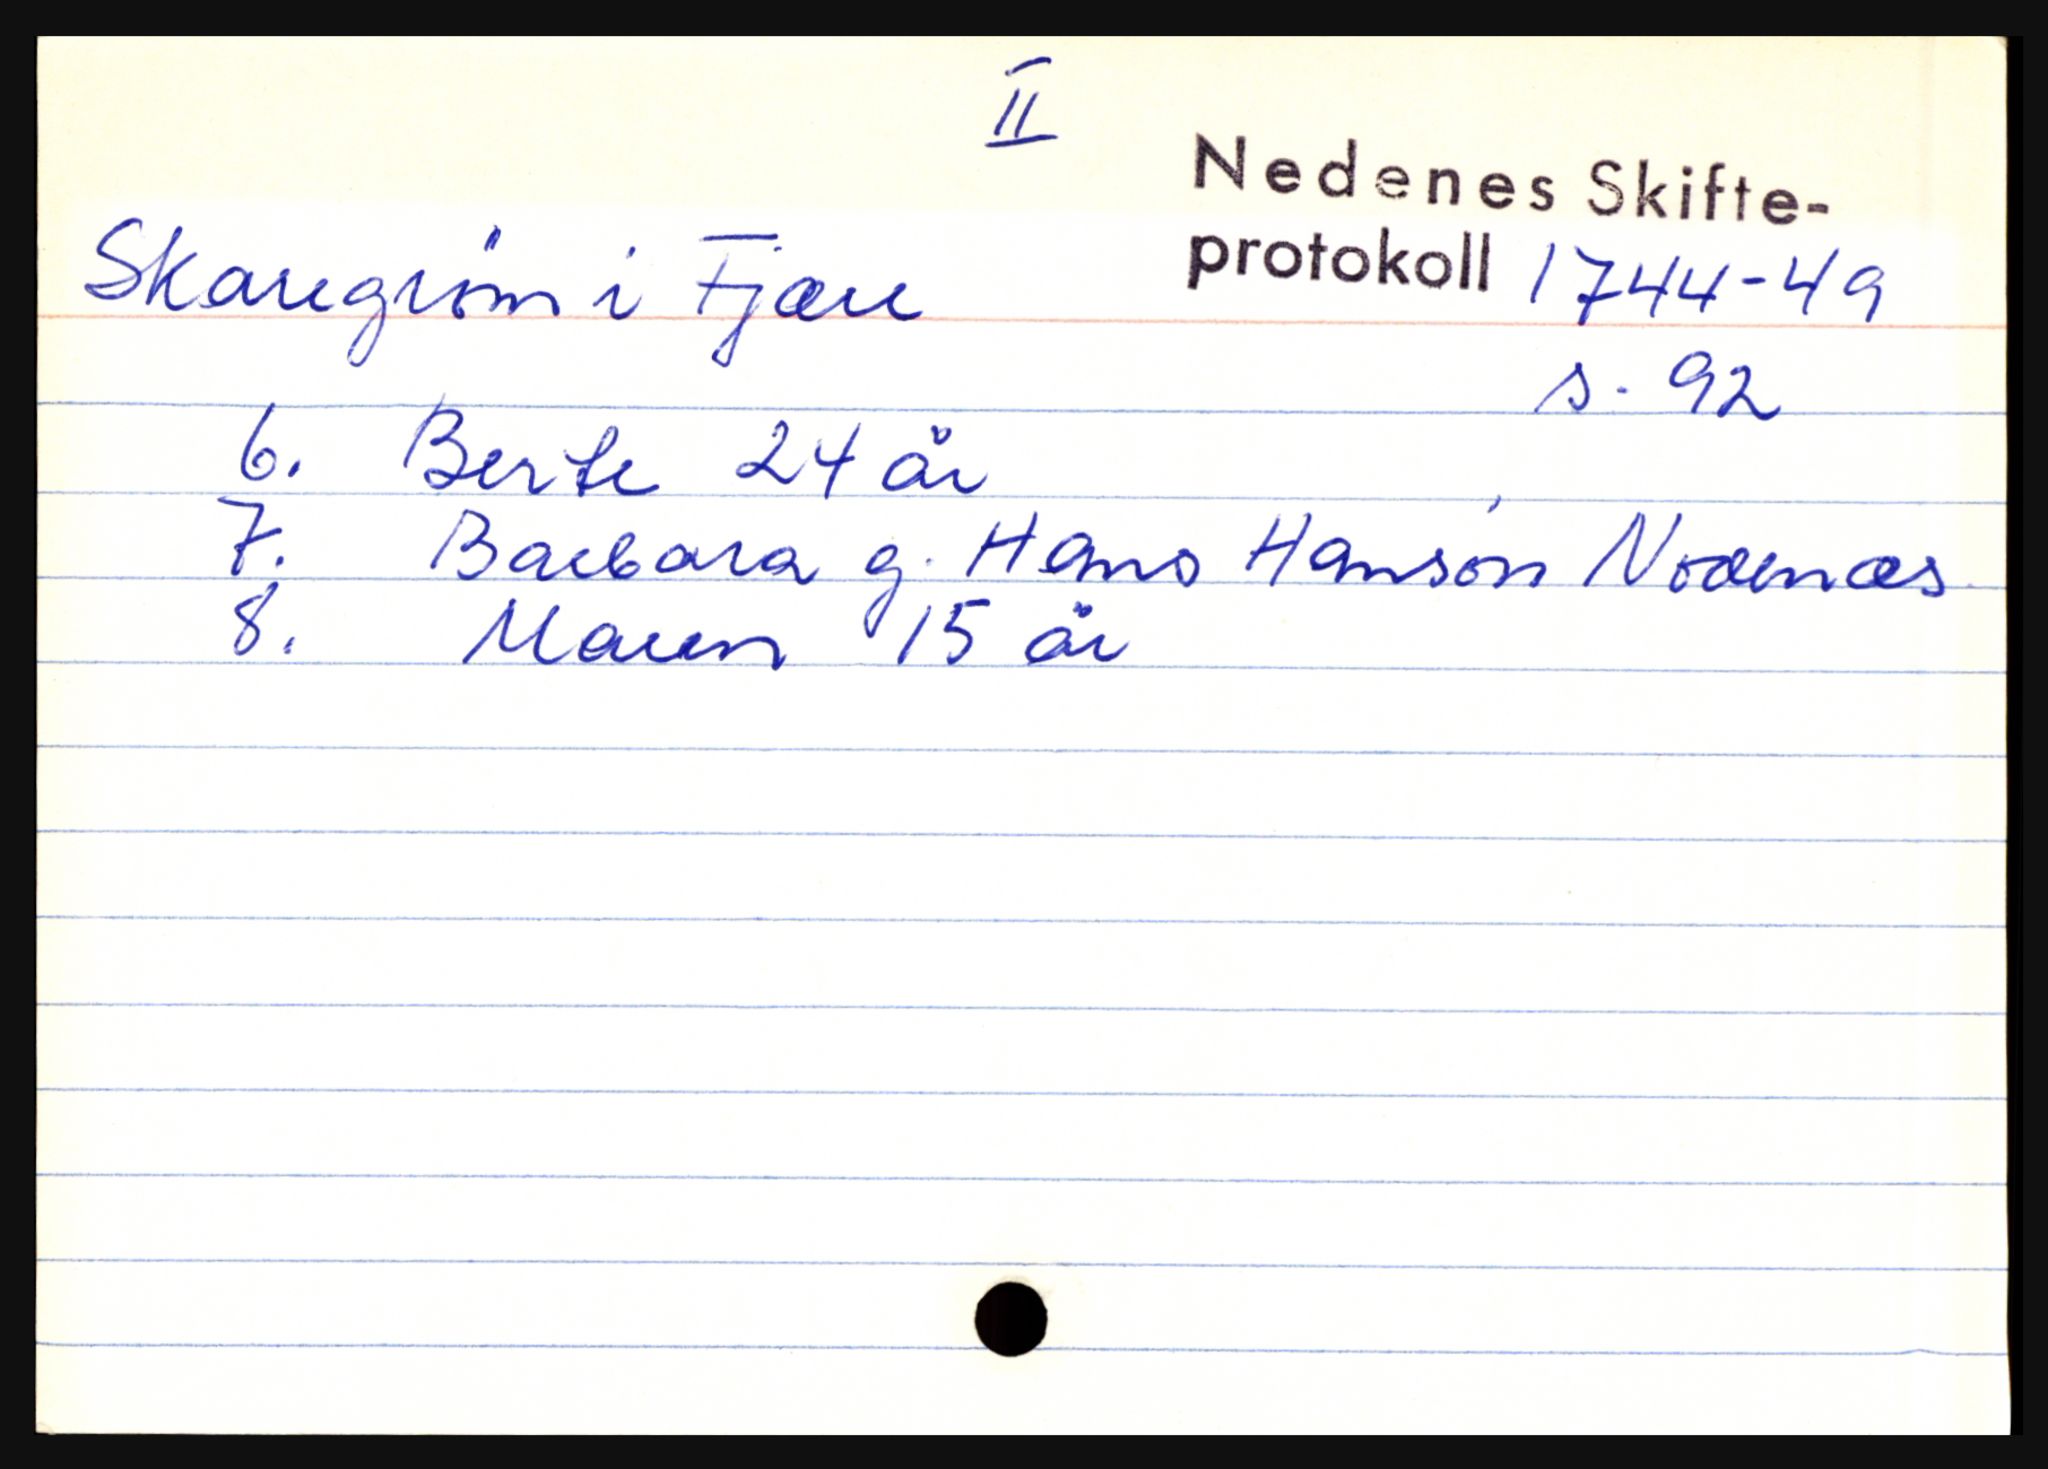 II
Nedenes Skifte-
protokoll 1744-49
Skaregrøm i Fjære
s. 92
6. Berte 24 år
7. Barbara g. Hans Hansøn Nodenæs
8. Maren 15 år